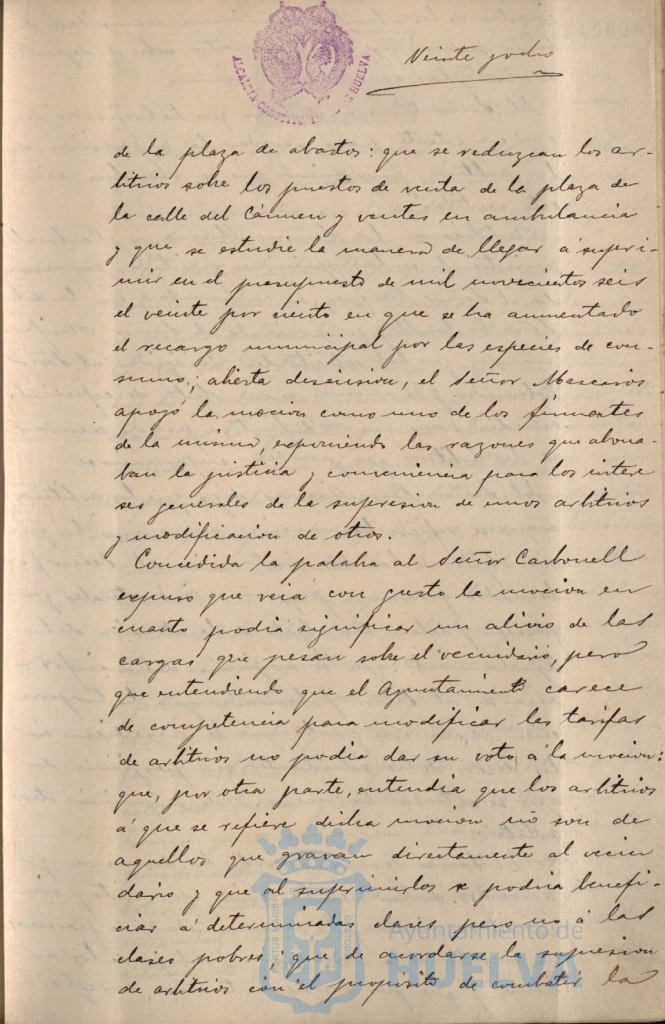 ALCALDIA CONSTITUCIONAL DE HUELVA
Veinte y ocho
de la plaza de abastos: que se reduzcan los ar-
bitrios sobre los puestos de venta de la plaza de
la calle del Cármen y ventas en ambulancia
y que se estudie la manera de llegar á supri-
mir en el presupuesto de mil novecientos seis
el veinte por ciento en que se ha aumentado
el recargo municipal por las especies de con-
sumo; abierta discusion, el Señor Mascarós
apoyó la mocion como uno de los firmantes
de la misma, exponiendo las razones que abona-
ban la justicia y conveniencia para los intere
ses generales de la supresion de unos arbitrios
y modificacion de otros.
Concedida la palabra al Señor Carbonell
expuso que veia con gusto la mocion en
cuanto podia significar un alivio de las
cargas que pesan sobre el vecindario, pero
que entendiendo que el Ayuntamiento carece
de competencia para modificar las tarifas
de arbitrios no podia dar su voto á la mocion:
que, por otra parte, entendia que los arbitrios
á que se refiere dicha mocion no son de
aquellos que gravan directamente al vecin
dario y que al suprimirlos se podria benefi-
ciar á determinadas clases pero no á las
clases pobres; que de acordarse la supresion
de arbitrios con el proposito de combatir la
Ayuntamiento de
HUELVA